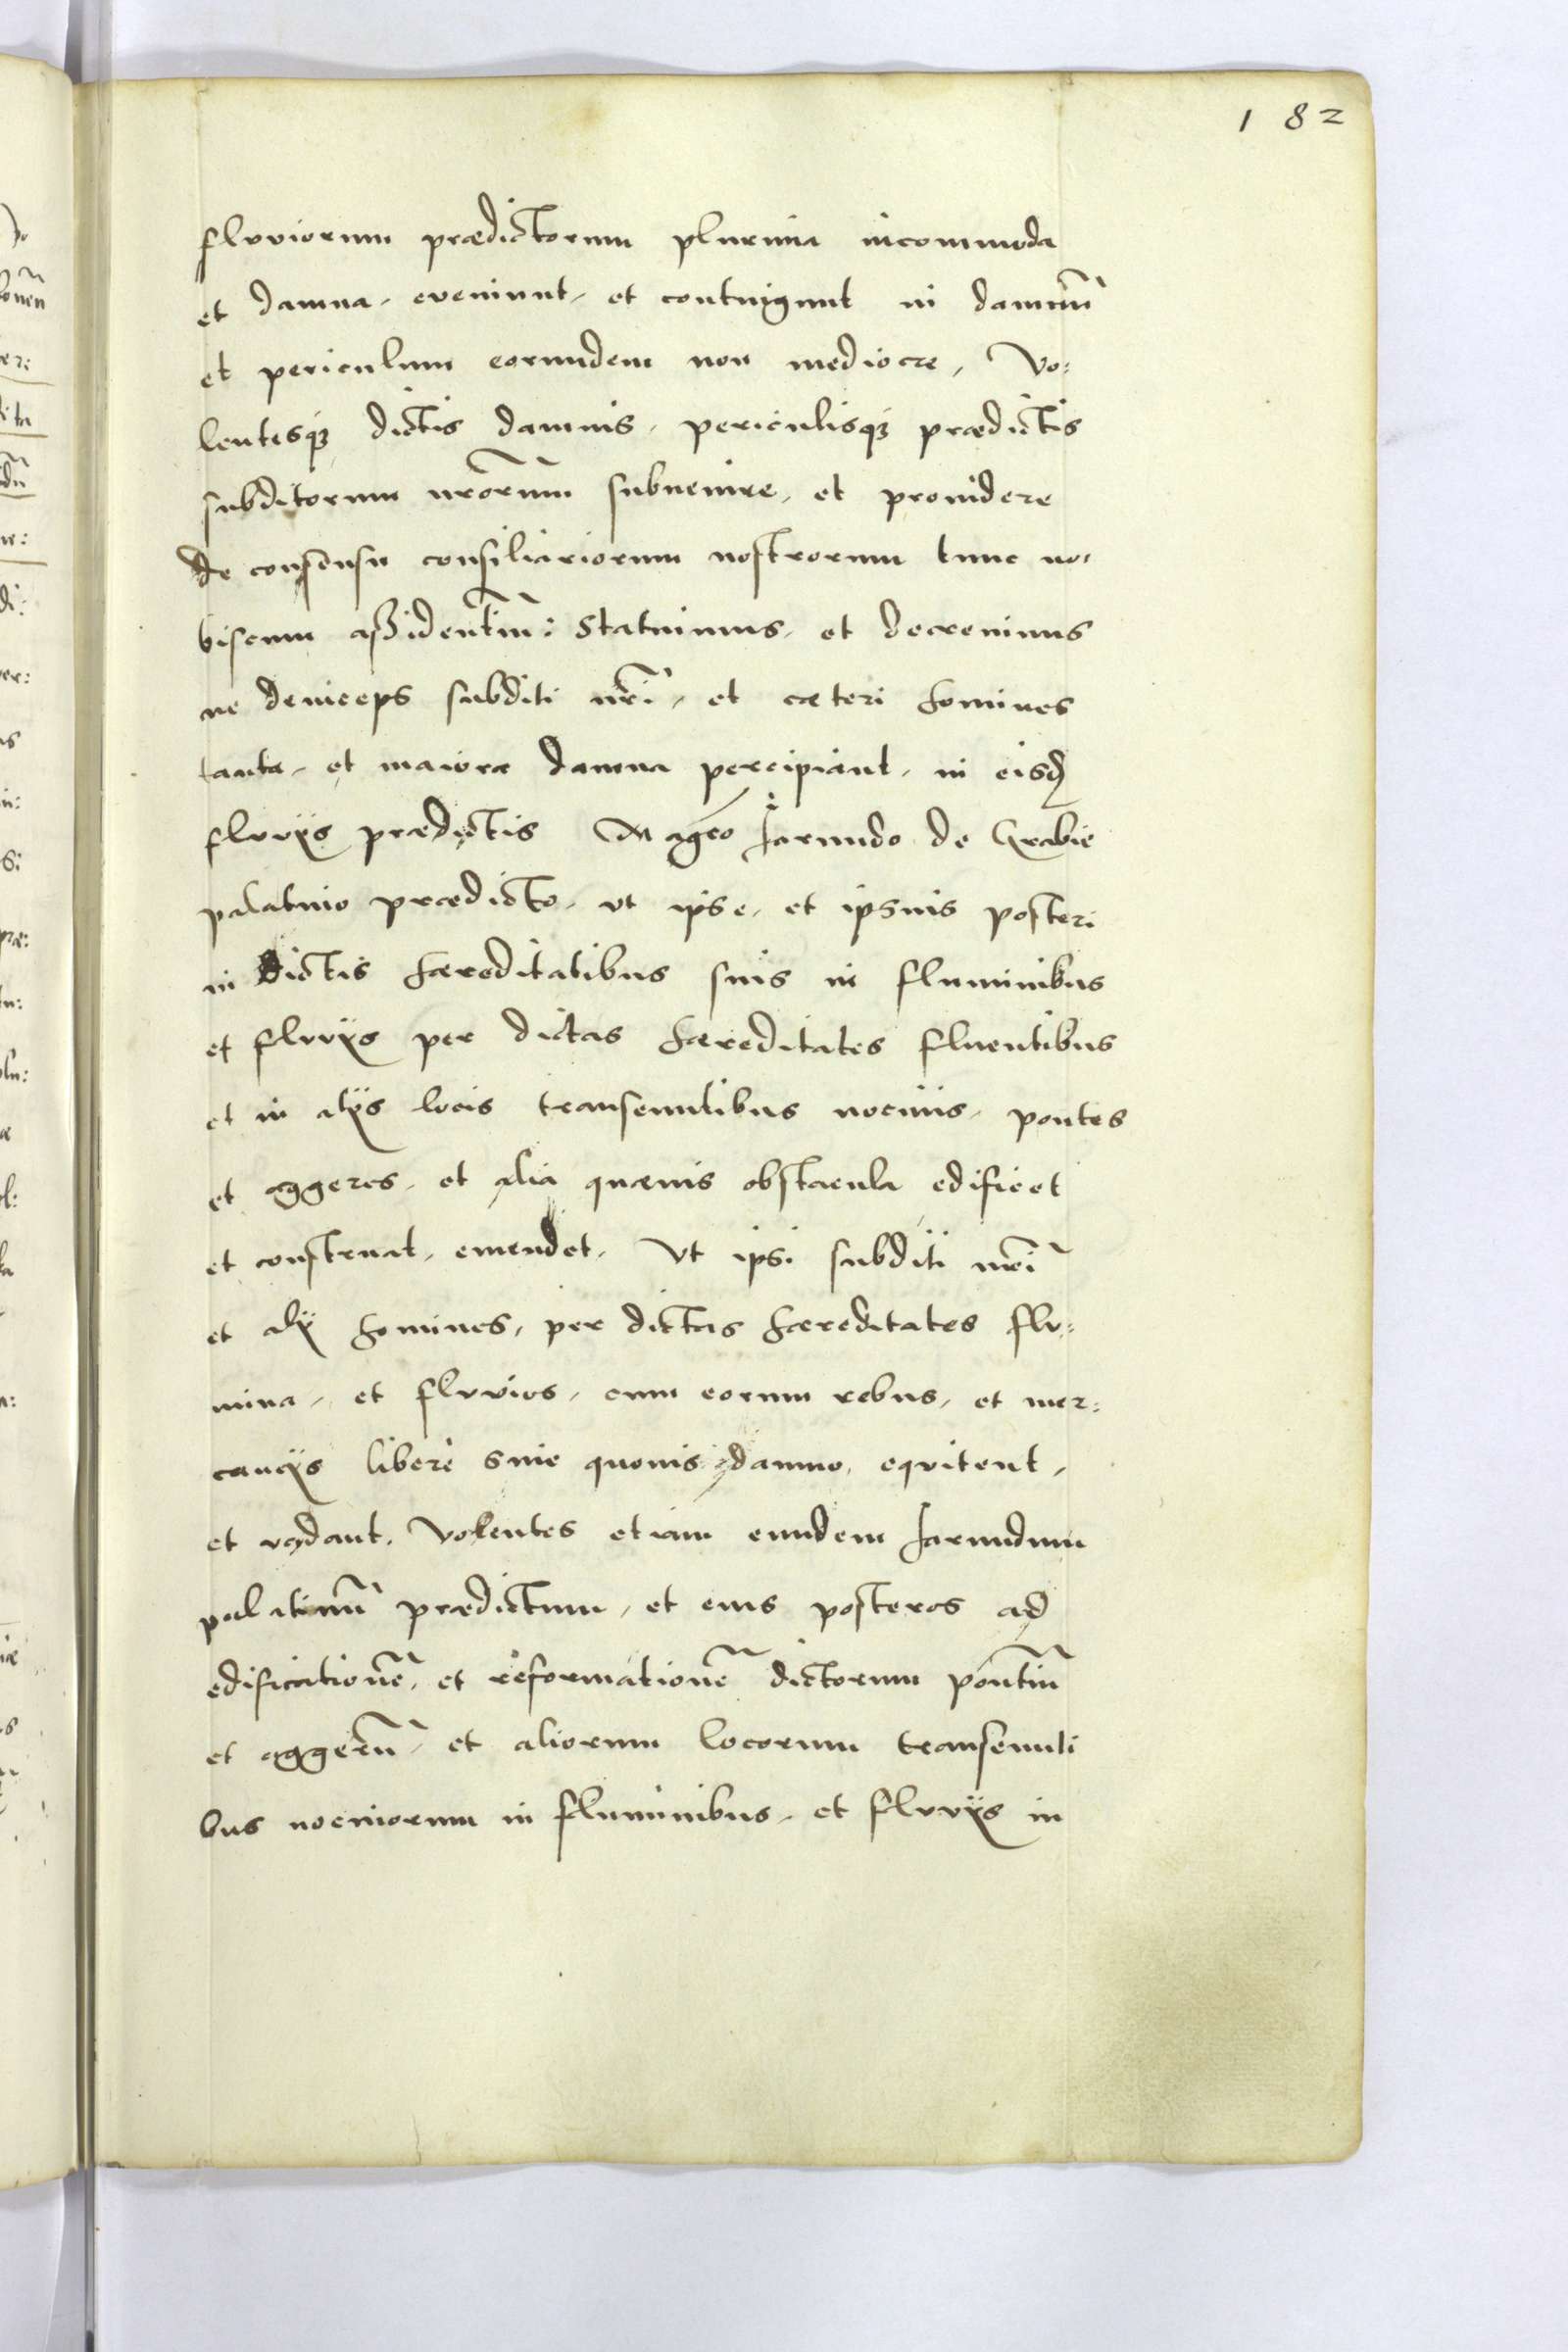 182
fluviorum prædictorum plurima incommoda
et damna, eveniunt, et contingunt in damnũ
et periculum eorundem non mediocre, Vo:
lentesqꝫ dictis damnis, periculisqꝫ prædictis
subditorum nrõrum subuenire, et prouidere
de consensu consiliariorum nostrorum tunc no:
biscum aßidentiũ: Statuimus, et decreuimus
ne deinceps subditi nrĩ, et cæteri homines
tanta, et maiora damna percipiant, in eisd
fluvijs prædictis Magco Harnudo de Grabie
palatino prædicto, vt ipse, et ipsius posteri
in dictis hæreditatibus suis in fluminibus
et fluvijs per dictas hæreditates fluentibus
et in alijs locis transeuntibus nociuis, pontes
et aggeres, et alia quæuis obstacula edificet
et construat, emendet, Vt ipsi subditi nrĩ
et alij homines, per dictas hæreditates flu:
mina, et fluvios, cum eorum rebus, et mer:
cancijs liberè sine quouis damno, eqvitent,
et vadant, Volentes etiam eundem Harnudum
palatinũ prædictum, et eius posteros ad
edificationẽ, et reformationẽ dictorum pontiũ
et aggerũ, et aliorum locorum transeunti
bus nociuorum in fluminibus, et fluvijs in